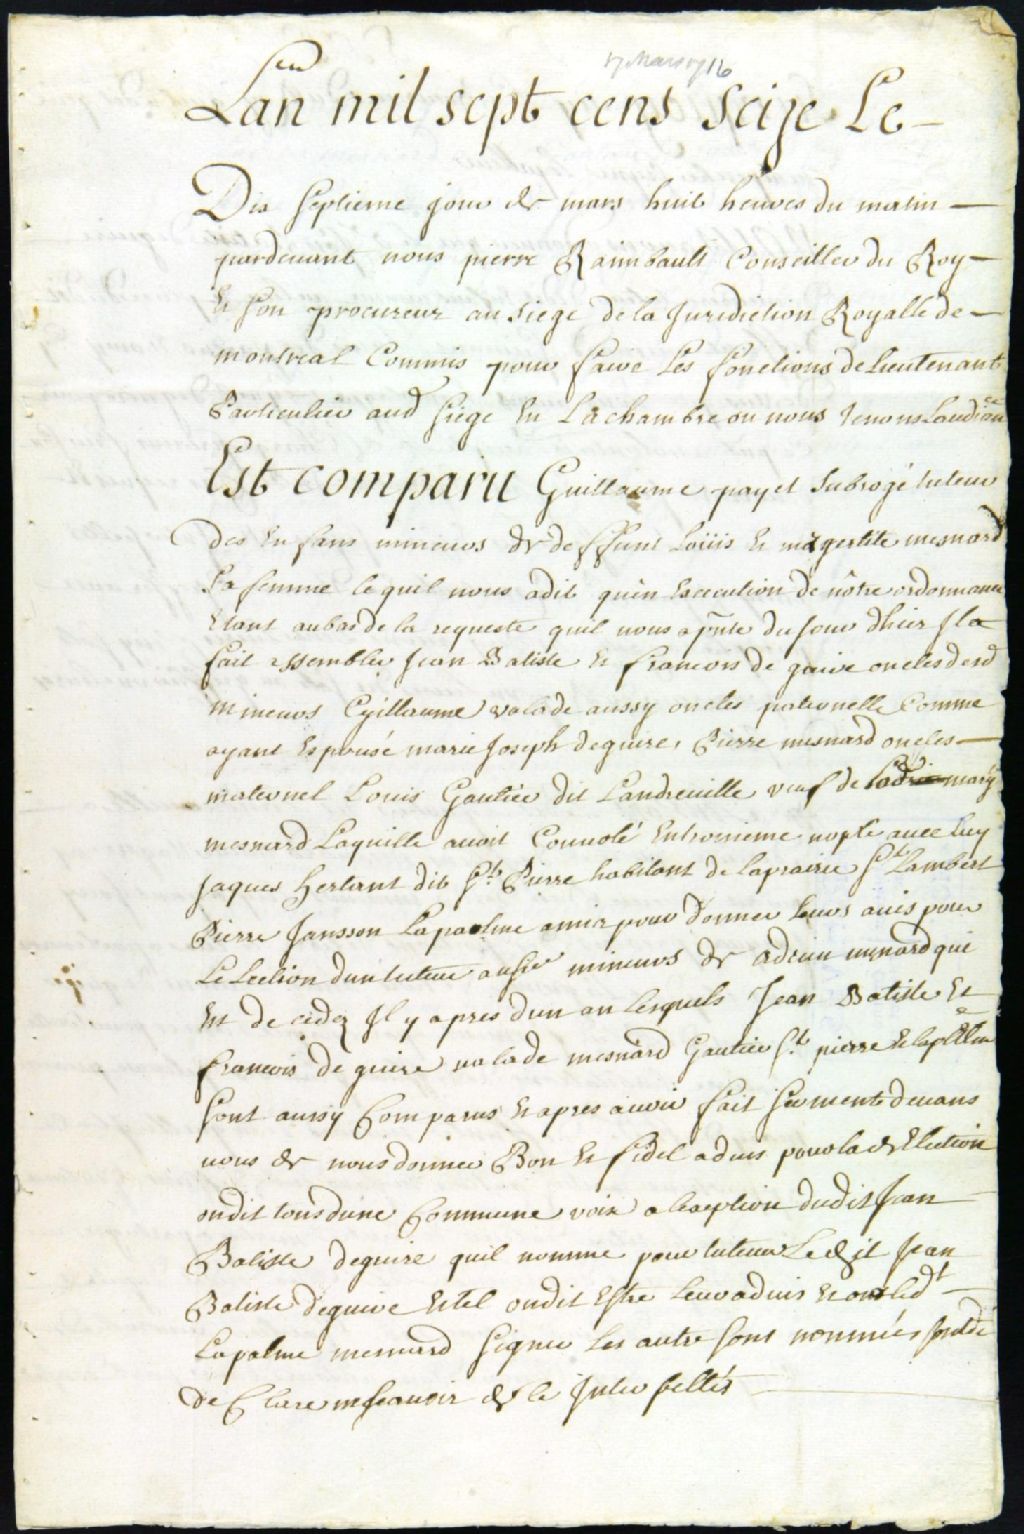 17 Mars 1716
Lan mil sept cens seize Le
Dix septieme jour de mars huit heures du matin
pardevant nous pierre Raimbault Conseiller du Roy
Et son procureur au siege de la Juridiction Royalle de
montreal Commis pour faire Les fonctions de Lieutenant
Particulier aud siege En La chambre ou nous tenons Laudiance
Est comparu Guillaume payet subrogé tuteur
des Enfans mineurs de deffunt Loüis Et mesnard
Sa femme lequil nous a dit qu'en Execution de nôtre ordonnance
Etant au bas de la requeste quil nous a pnte du Jour dhier Jl a
fait assembler Jean Batiste Et francois de guire oncles desd
mineurs Guillaume valade aussy oncles paternelle Comme
ayant Espousé marie Joseph deguire, Pierre mesnard oncles
maternel Louis Gautier dit Landreville veuf de marg
mesnard Laquille avoit Convolé En troisieme nopce avec luy
Jaques hertant dit St Pierre habitant de laprairie St Lambert
Pierre Jansson Lapalme amis pour donner leurs avis pour
LeLection dun tuteur ausd mineurs de Adrien mesnard qui
Est de cedez Jl y a pres dun an lesquels Jean Batiste Et
francois de guire valade mesnard Gautier St pierre Et laplme
sont aussy Comparus Et apres avoir fait serment devans
nous de nous donner Bon Et fidel advis pour lade Election
on dit tous dune Commune voix a lexeption dudit Jean
Batiste deguire quil nomme pour tuteur Ledit Jean
Batiste deguire Et tel on dit Estre leur advis Et ont led
Lapalme mesnard signé Les autre sons nommés
de Clare ne scavoir de ce Jnter pellés